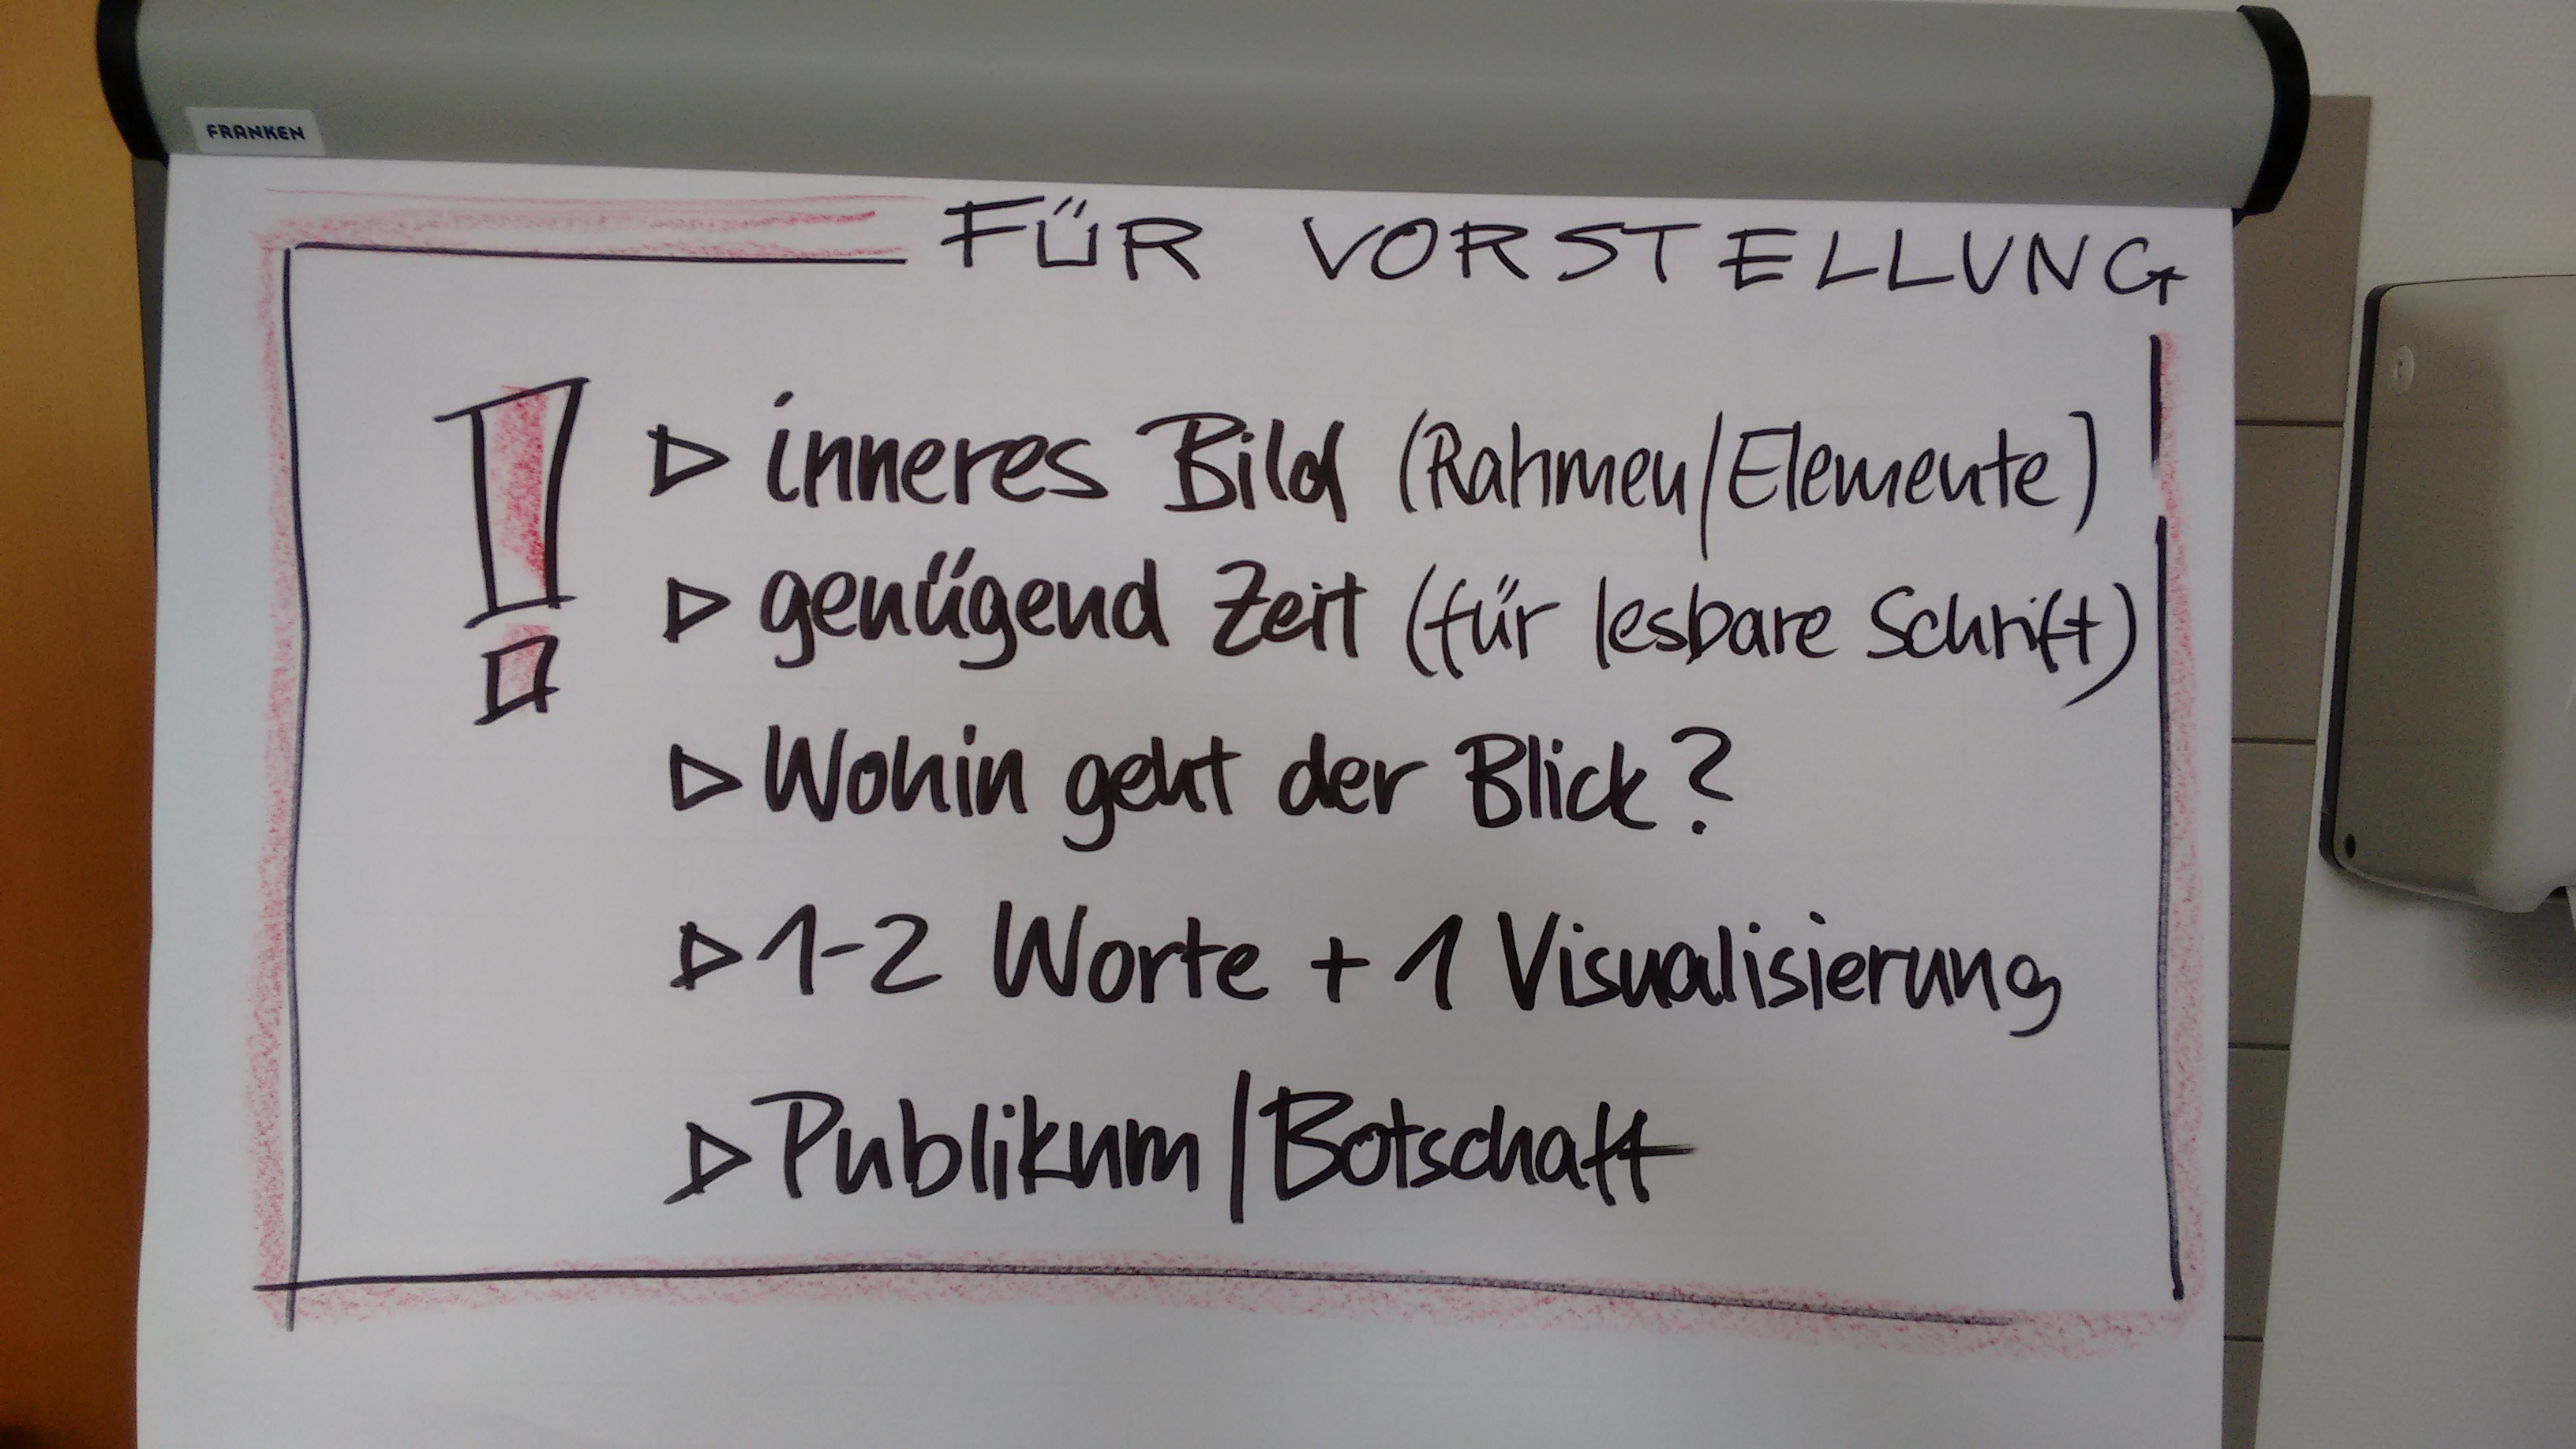 FRANKEN
FÜR VORSTELLUNG
inneres Bild (Rahmen/Elemente)
genügend Zeit (für lesbare Schrift)
Wohin geht der Blick?
1-2 Worte + 1 Visualisierung
Publikum/Botschaft